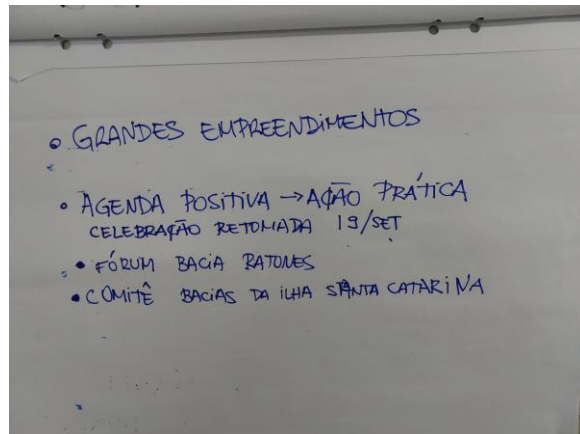 • GRANDES EMPREENDIMENTOS
• AGENDA POSITIVA → AÇÃO PRÁTICA
CELEBRAÇÃO RETOMADA 19/SET
• FÓRUM BACIA RATONES
• COMITÊ BACIAS DA ILHA SANTA CATARINA